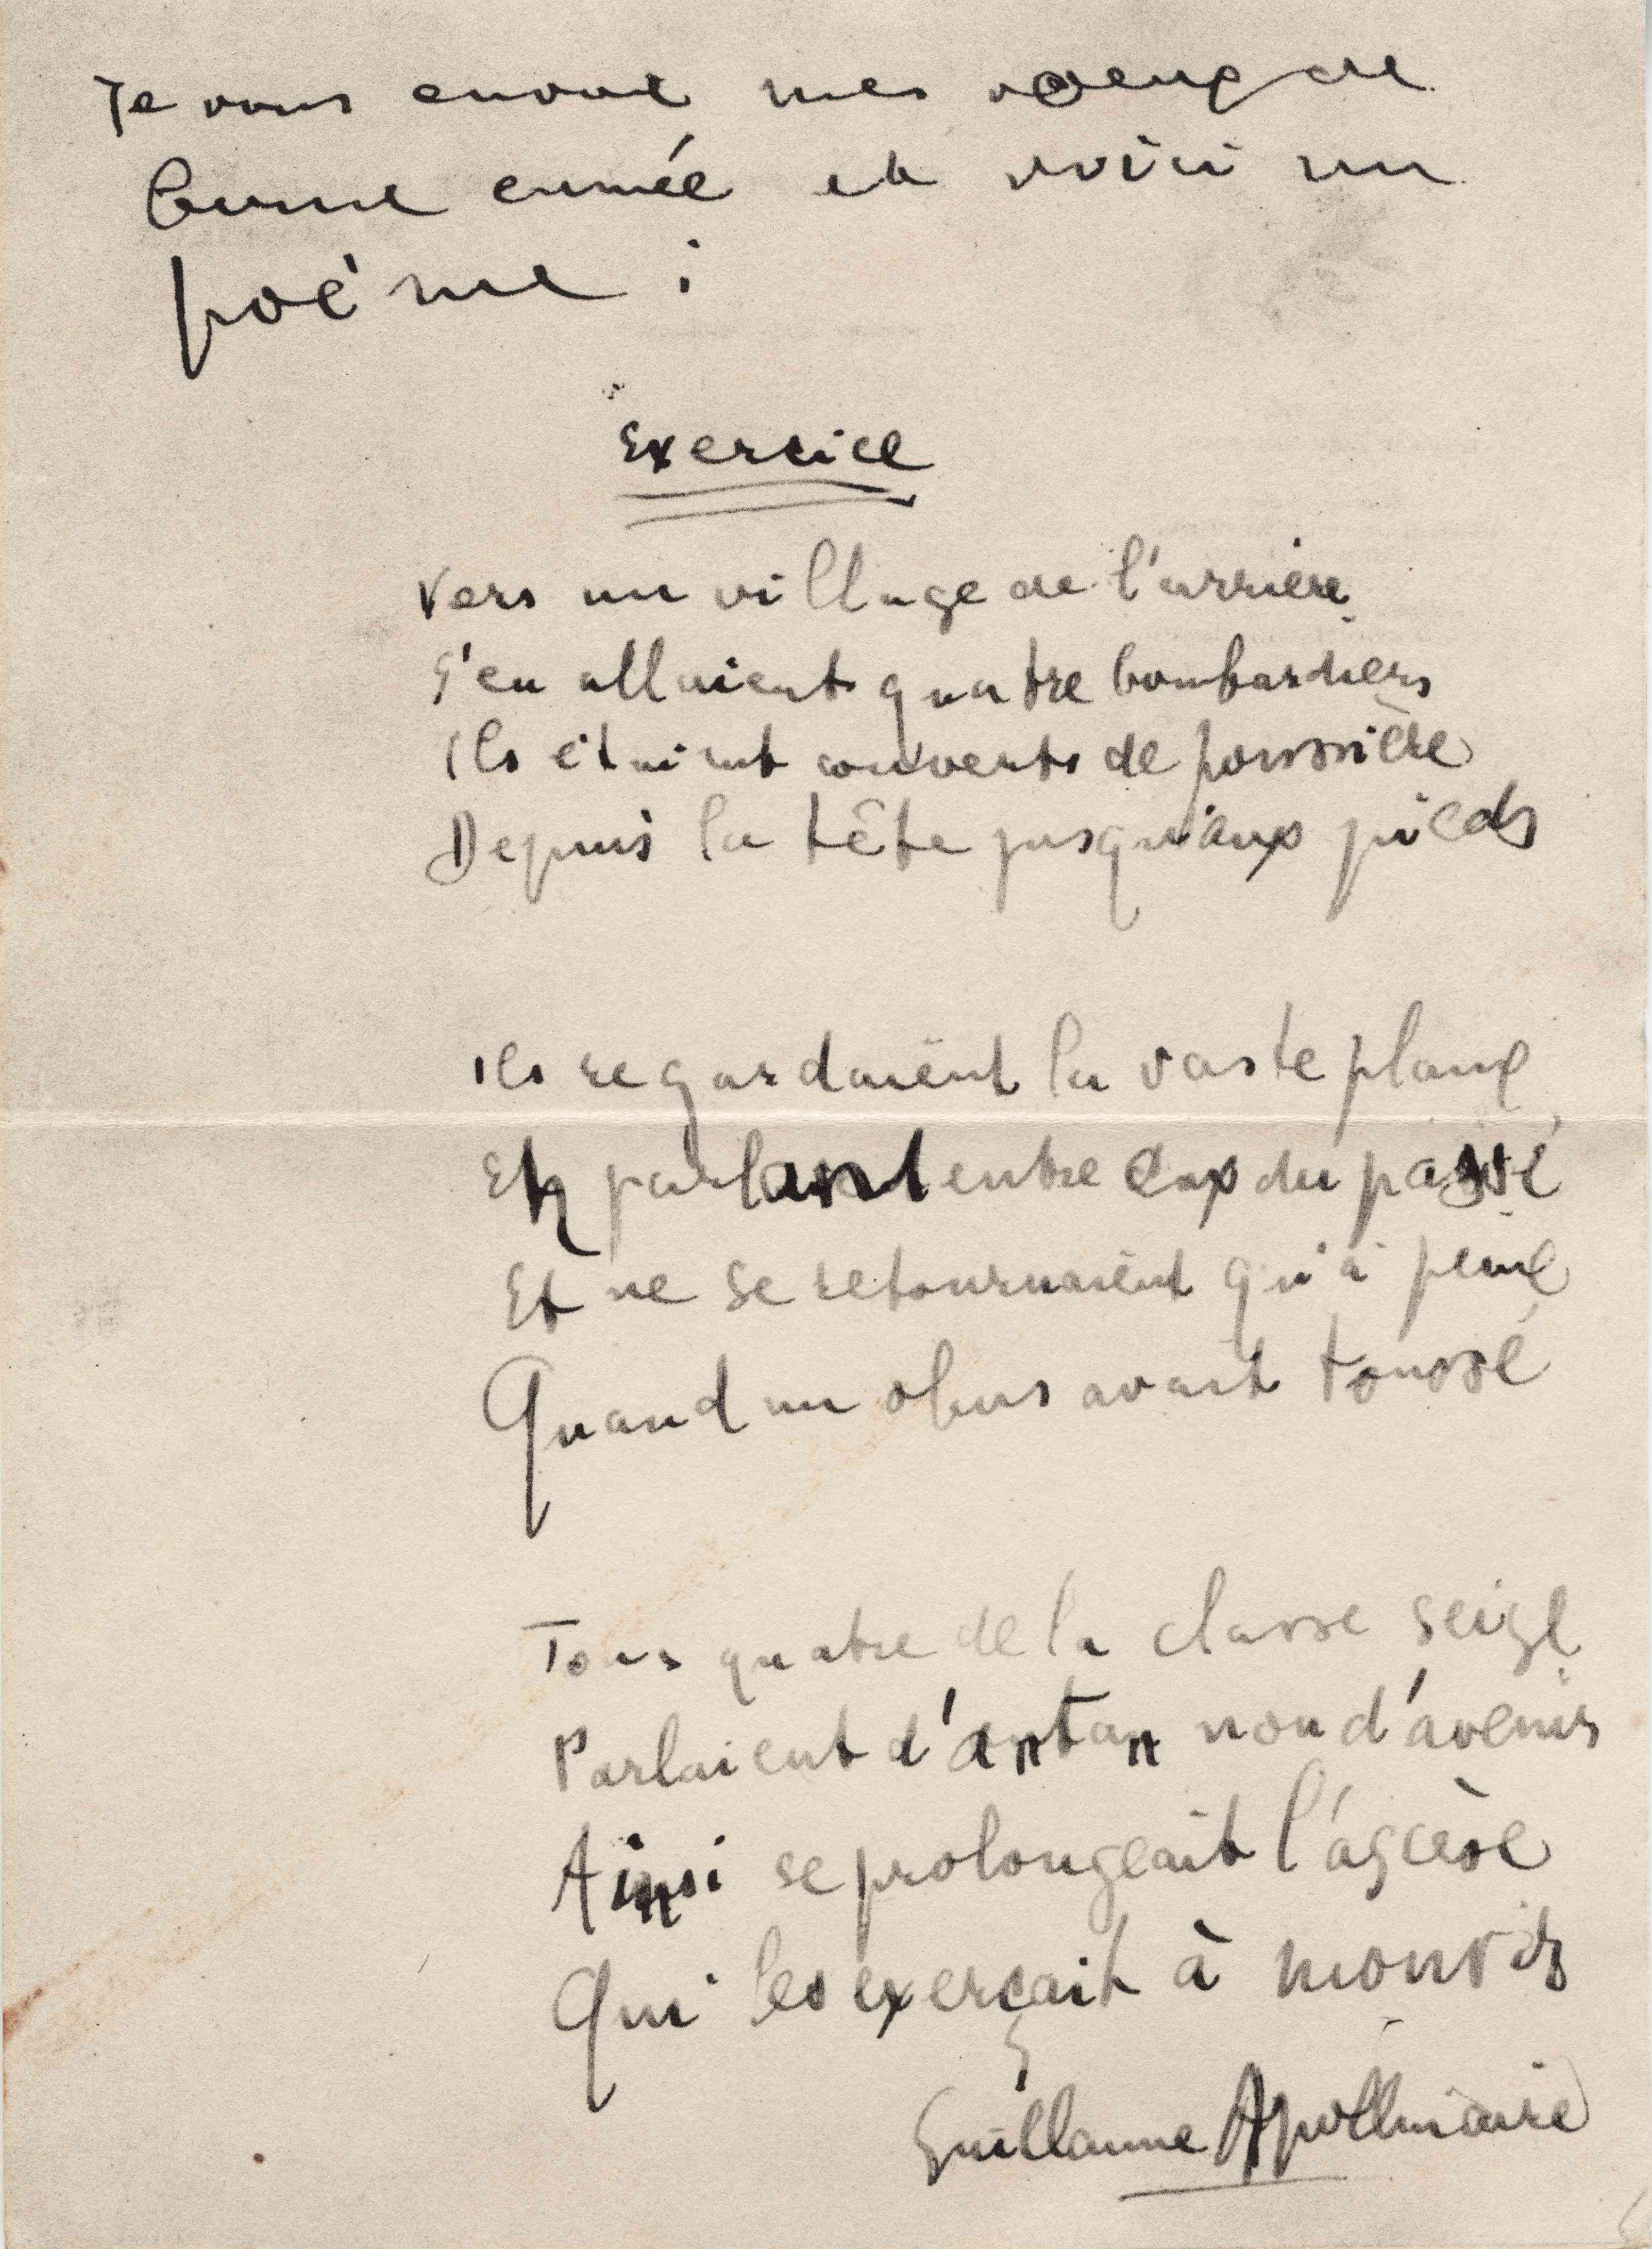 Je vous envoie mes voeux de
bonne année et voici un
poème :
Exercice
Vers un village de l'arrière
S'en allaient quatre bombardiers
Ils étaient couverts de poussière
Depuis la tête jusqu'aux pieds
Ils regardaient la vaste plaine
En parlant entre eux du passé
Et ne se retournaient qu'à peine
Quand un obus avait toussé
Tous quatre de la classe seize
Parlaient d'antan non d'avenir
Ainsi se prolongeait l'ascèse
Qui les exerçait à mourir
Guillaume Apollinaire